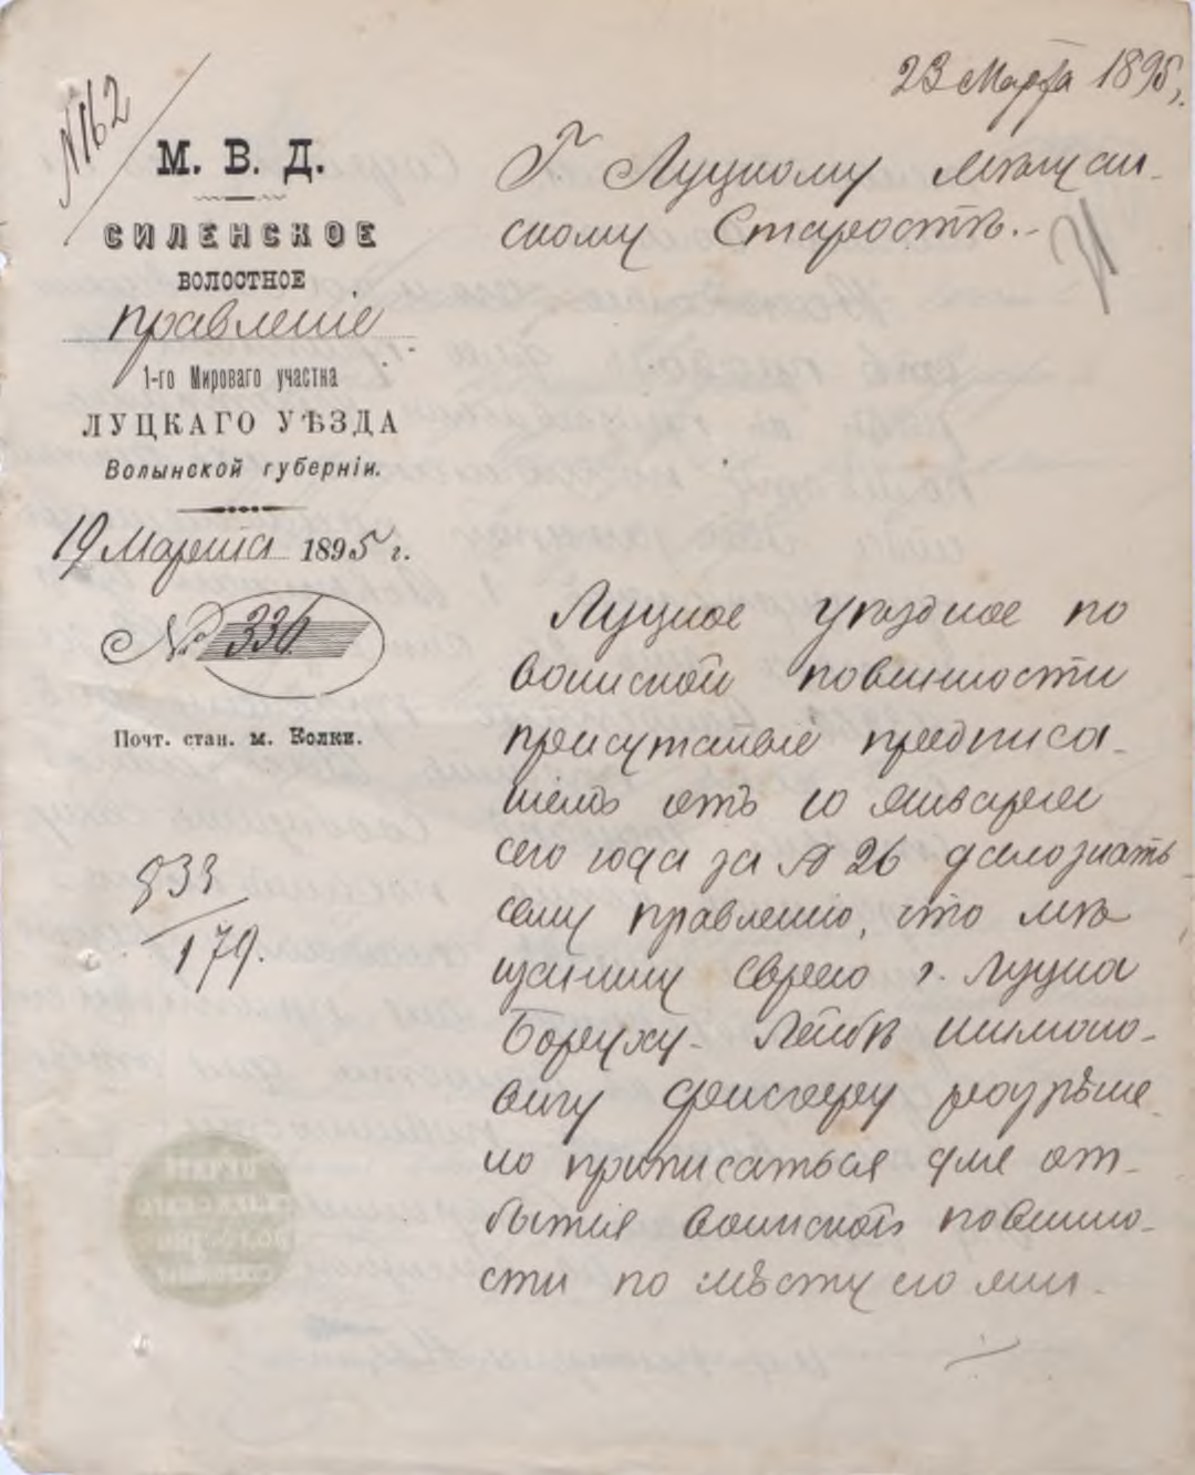 23 Марта 1895 г.
N 162
М. В. Д.
СИЛЕНСКОЕ
ВОЛОСТНОЕ
правленіе
1-го Мироваго участка
ЛУЦКАГО УѢЗДА
Волынской губерніи.
19 Марта 1895 г.
№ 336
Почт. стан. м. Колки.
833
179.
Г. Луцкому мѣщан-
скому Старостѣ.-
Луцкое уѣздное по
воинской повинности
присутствіе предписа-
ніемъ отъ 10 января
сего года за № 26 дало знать
сему правленію, что мѣ
щанину еврею г. Луцка
Боруху-Лейбѣ Шимоно-
вичу Фишеру разрѣше
но приписаться для от-
бытія воинской повинно-
сти по мѣсту его жи-